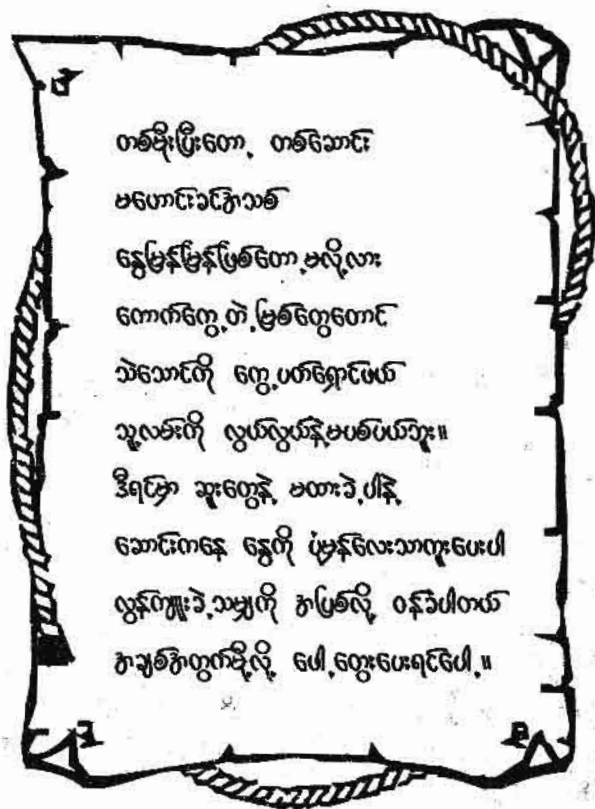 တစ်မိုးပြီးတော့ တစ်ဆောင်း
မဟောင်းခင်အသစ်
နွေမြန်မြန်ဖြစ်တော့မလို့လား
ကောက်ကွေ့တဲ့မြစ်တွေတောင်
သဲသောင်ကို ကွေ့ပတ်ရှောင်ဖယ်
သူ့လမ်းကို လွယ်လွယ်နဲ့မပစ်ပယ်ဘူး။
ဒီရင်မှာ ဆူးတွေနဲ့ မထားခဲ့ပါနဲ့
ဆောင်းကနေ နွေကို ပုံမှန်လေးသာကူးပေးပါ
လွန်ကျူးခဲ့သမျှကို အပြစ်လို့ ဝန်ခံပါတယ်
အချစ်အတွက်မို့လို့ ပေါ့တွေးပေးရင်ပေါ့။